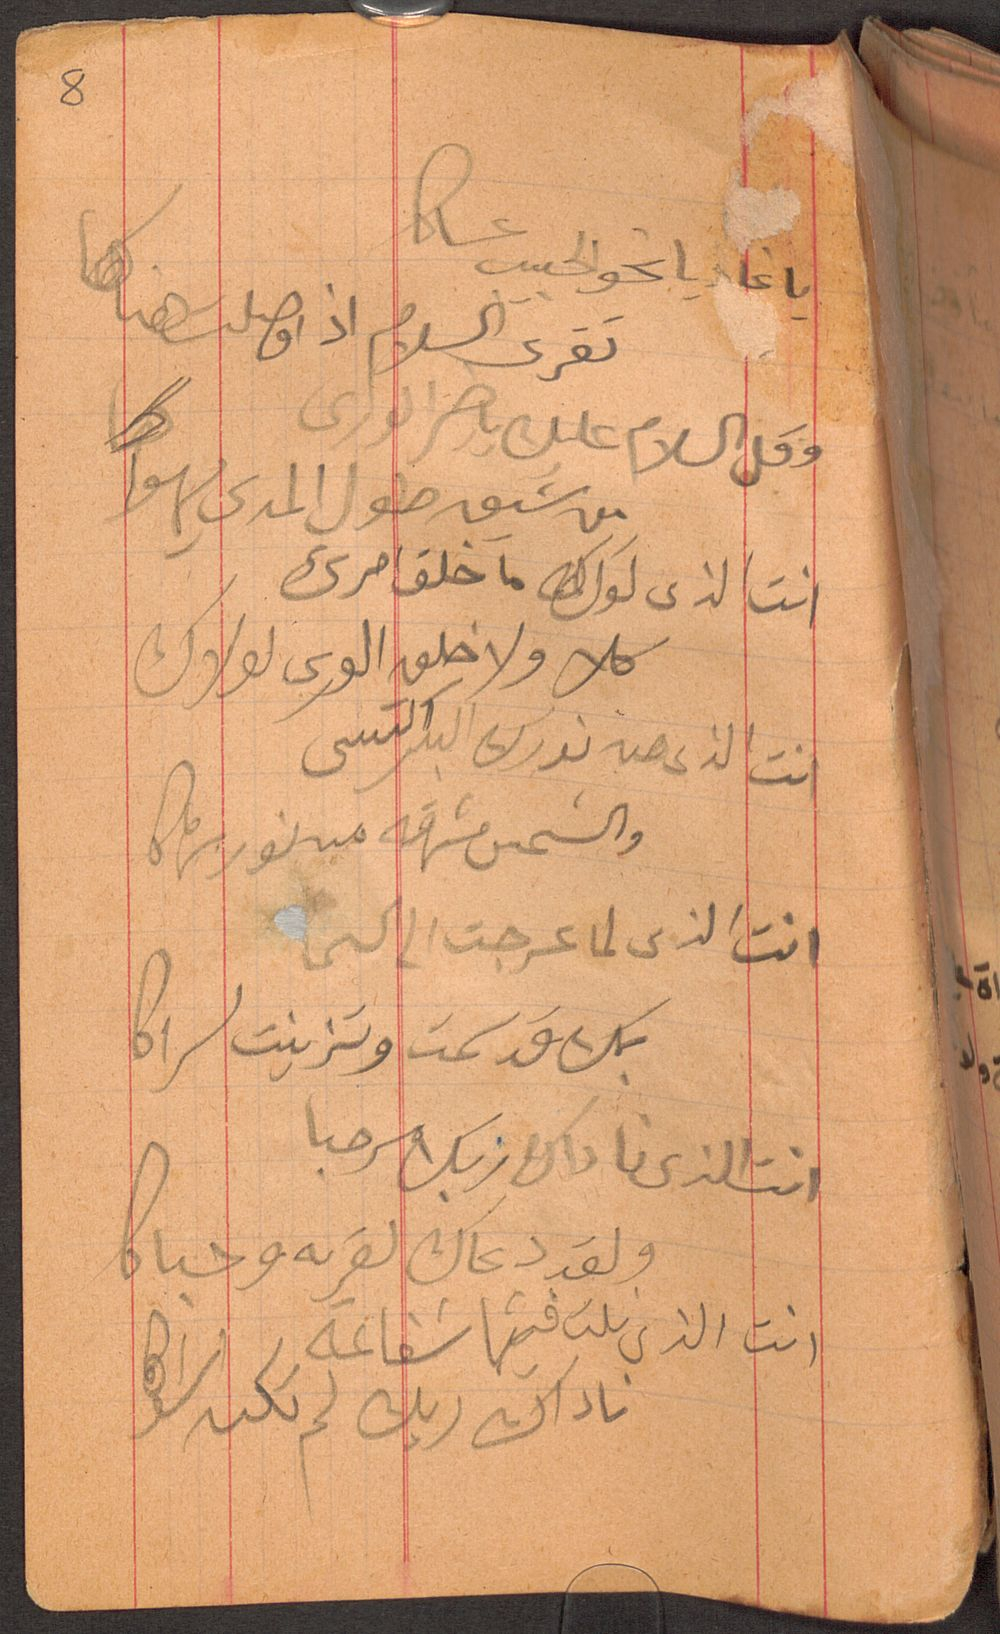 8
يا غاديا نحو الحبيب عساكا
تقرى السلام اذا وصلت هناكا
وقل السلام عليك يا الورى
من شيق طول المدى يهواكا
انت الذى لولاك ما خلق امرئ
كلا ولا خلق الورى لولاك
انت الذى من نورك البدر اكتسى
والشمس مشرقه من نور بهاكا
انت الذى لما عرجت الى السما
بك قد سمت وتزينت لسراكا
انت الذى ناداك ربك مرحبا
ولقد دعاك لقربه وحباكا
انت الذى شفاعة
ناداك ربك لم تكن لسواكا